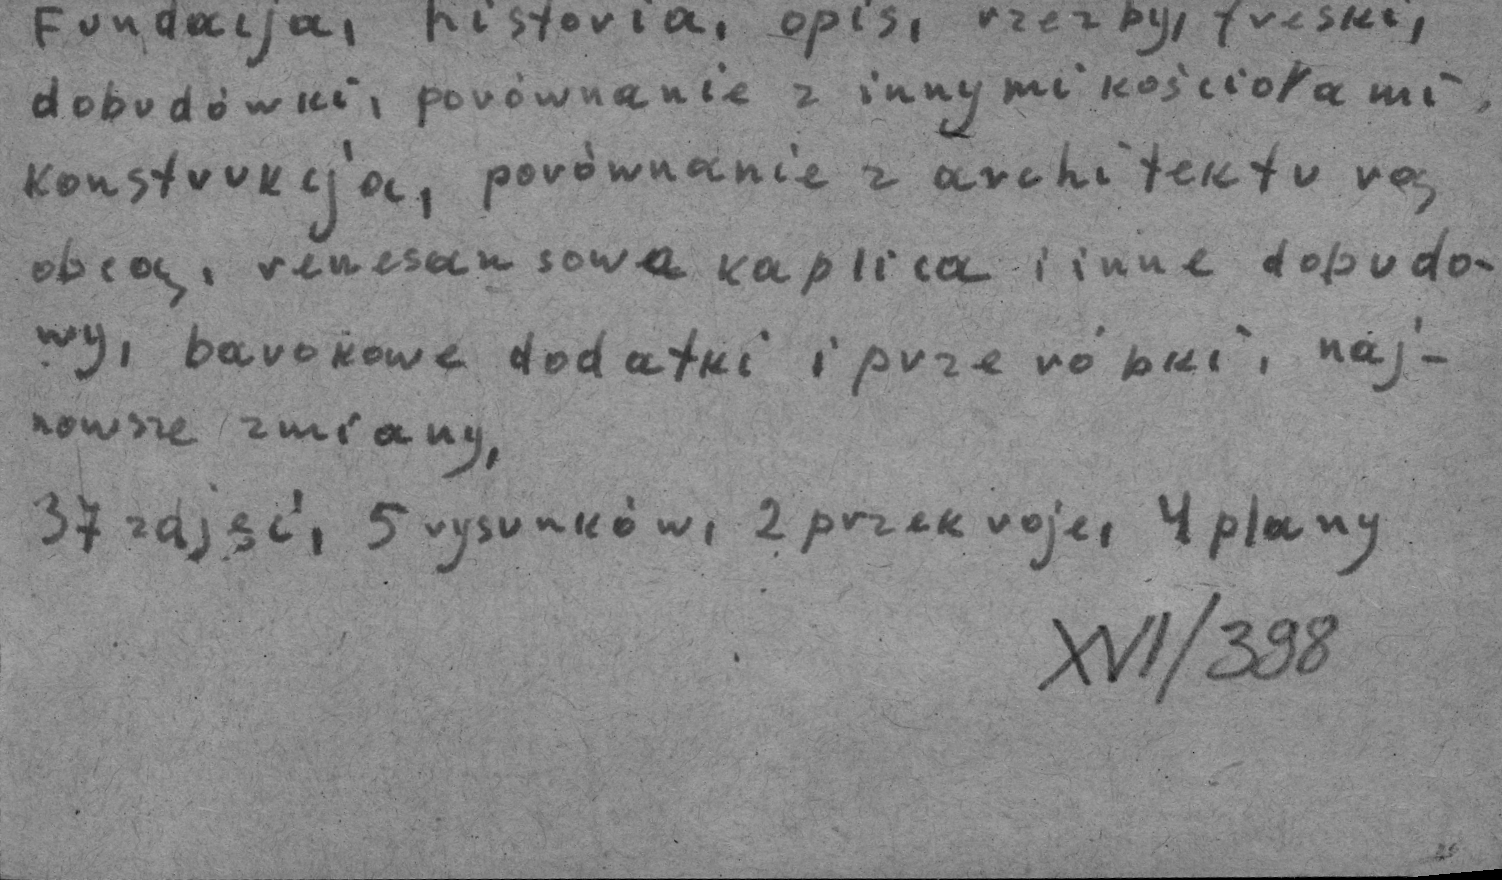 Fundacja, historia, opis, rzeźby, freski,
dobudówki, porównanie z innymi kościołami,
konstrukcja, porównanie z architekturą
obcą, renesansowa kaplica i inne dobudo-
wy, barokowe dodatki i przeróbki, naj-
nowsze zmiany,
37 zdjęć, 5 rysunków, 2 przekroje, 4 plany
XVII/398